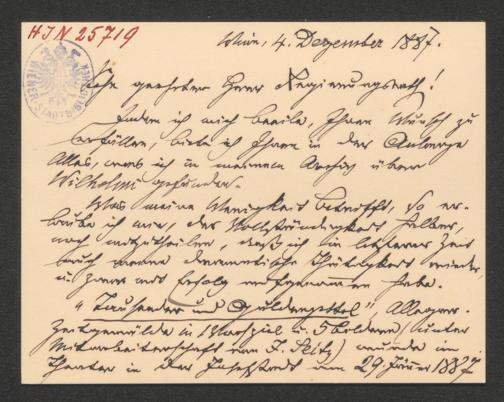 HIN 25719
WIENER STADTBIBLIOTHEK
Wien, 4. Dezember 1887.
Sehr geehrter Herr Regierungsrath!
Indem ich mich beeile, Ihrem Wunsch zu
erfüllen, biete ich Ihnen in der Anlage
Alles, was ich in meinem Archiv über
Wilhelmi gefunden.
Was meine Wenigkeit betrifft, so er-
laube ich mir, der Vollständigkeit halber,
noch mitzutheilen, daß ich in letzterer Zeit
auch meine dramatische Thätigkeit wieder,
u. zwar mit Erfolg aufgenommen habe.
"Tausender und Guldenzettel", Allegor.
Zeitgemälde in 1 Vorspiel u. 5 Bildern (unter
Mitarbeiterschaft von F. Seitz) wurde im
Theater in der Josefstadt am 29. Jänner 1887